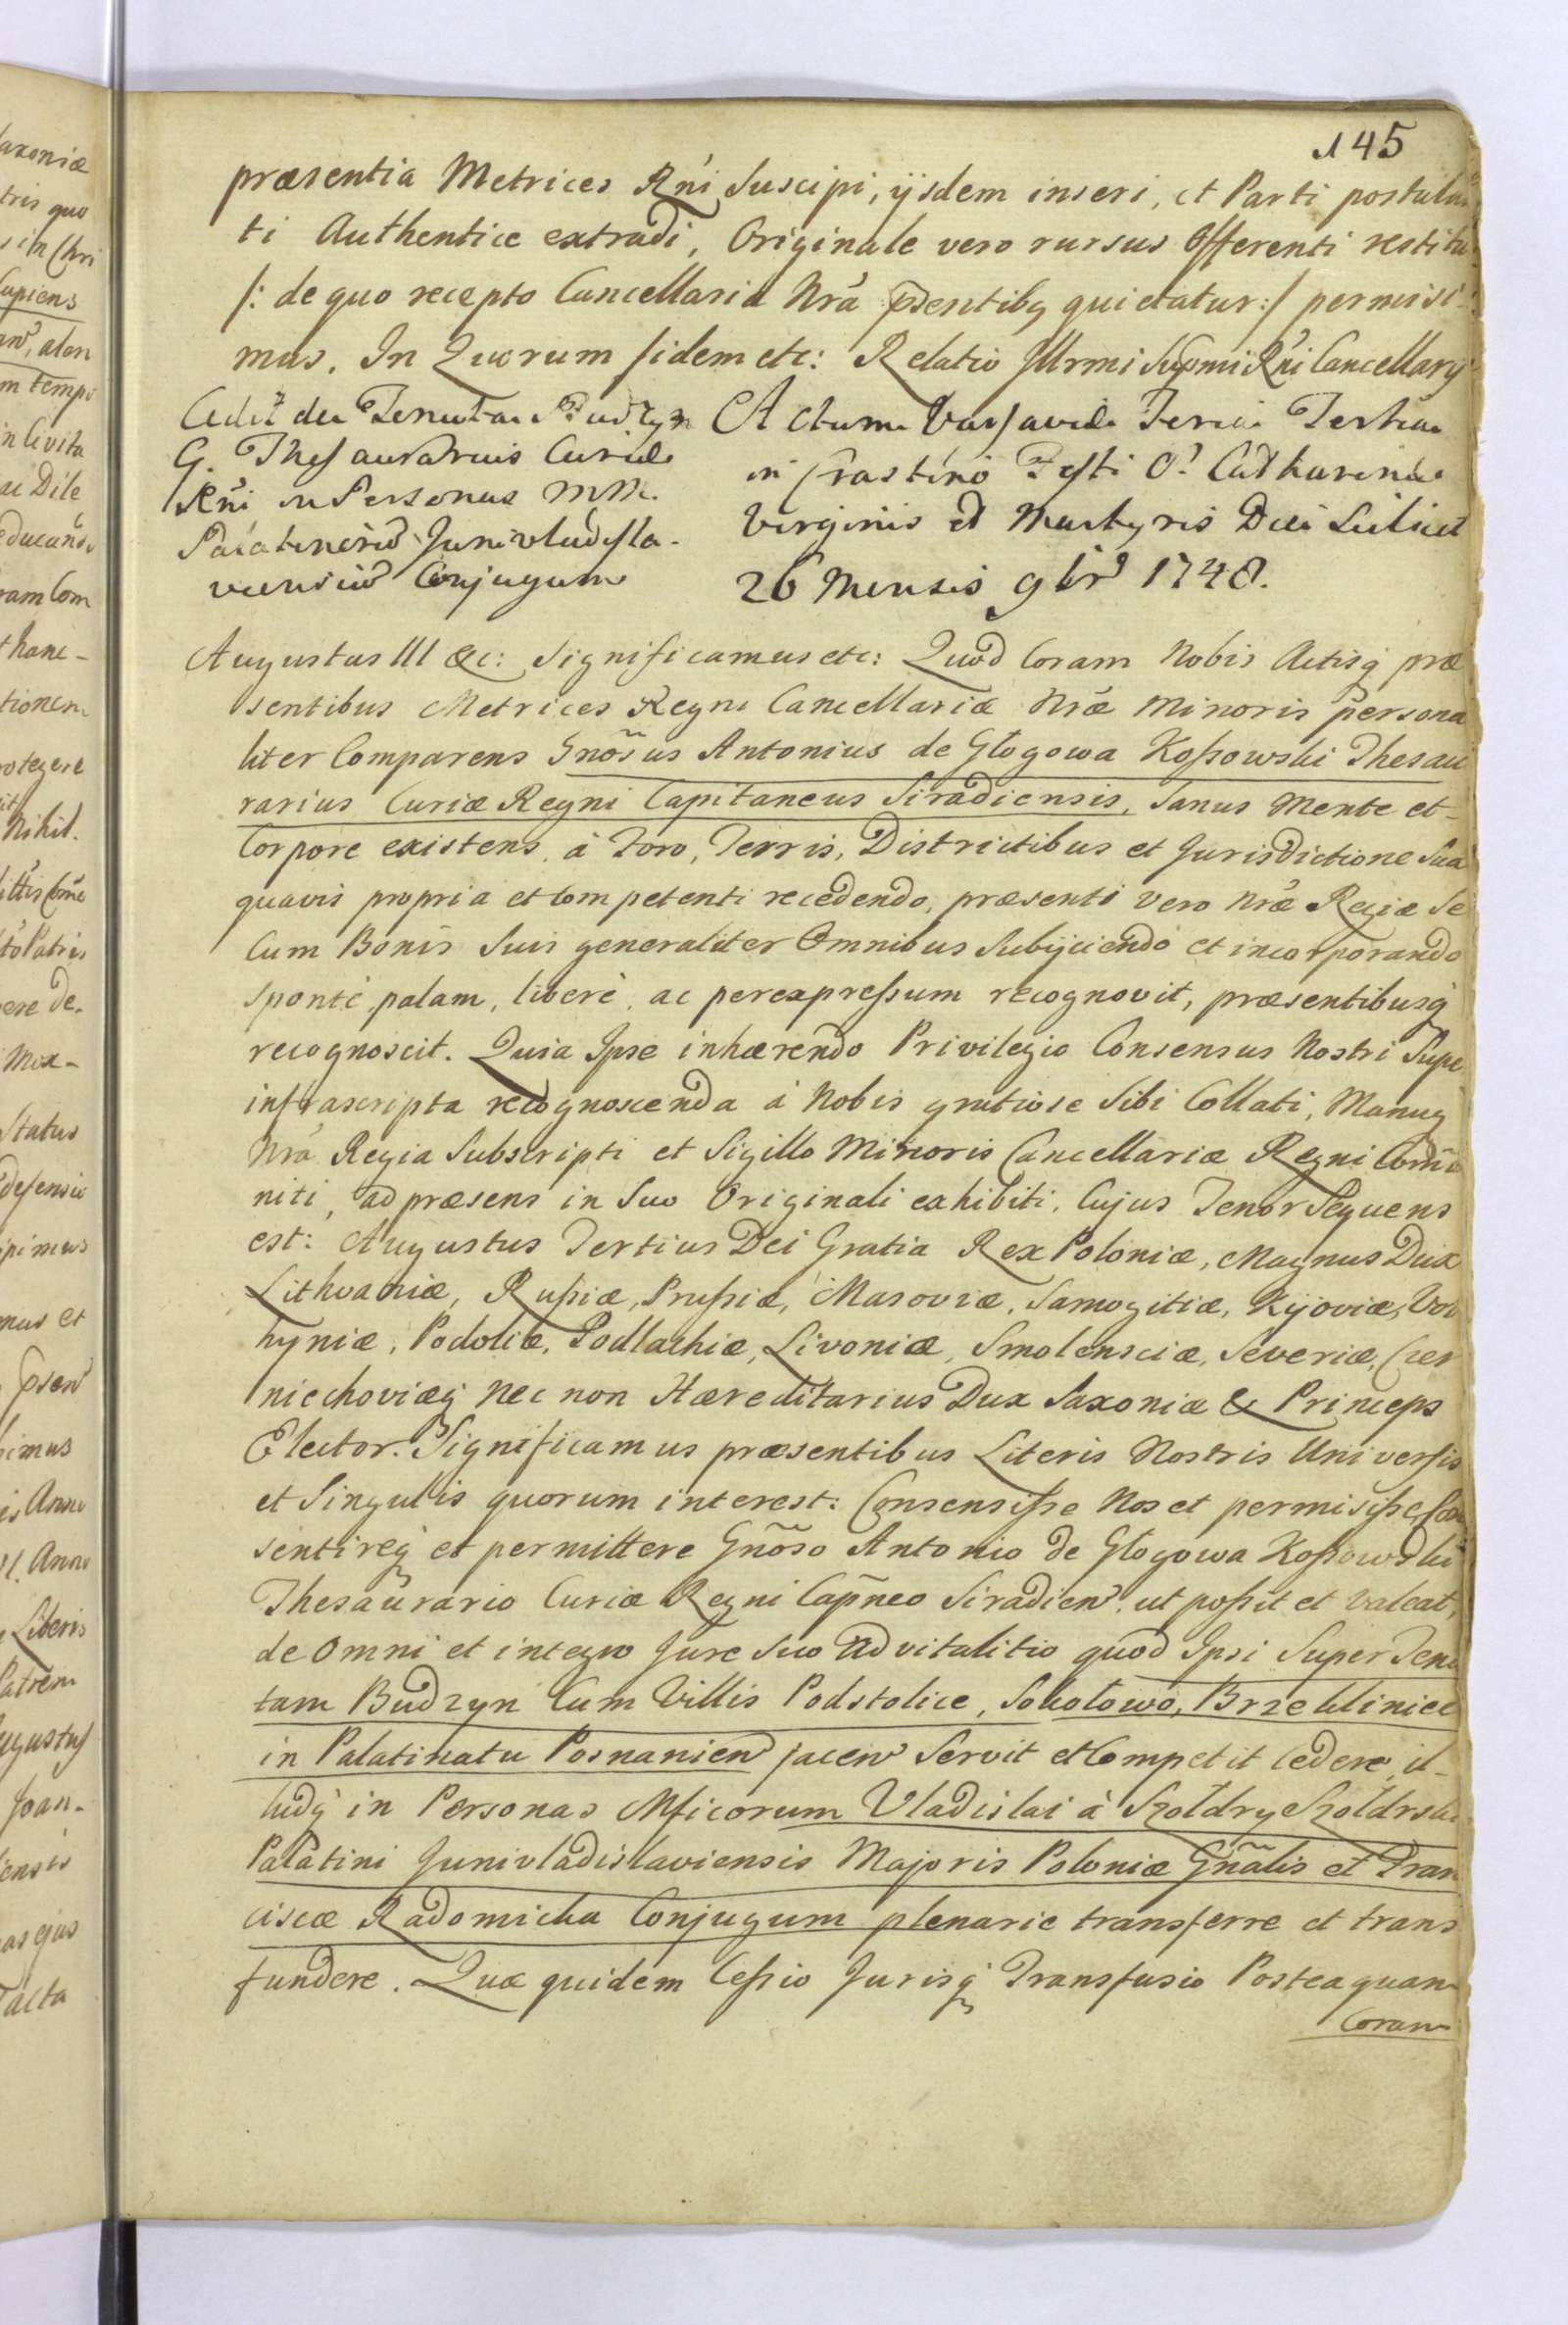 145
præsentia Metrices Rńi Suscipi, ijsdem inseri, et Parti postulan
ti Authentice extradi, Originale vero rursus Offerenti restitui
/: de quo recepto Cancellaria Nrá p̃sentibq quietatur :/ permisi-
mus. In Quorum fidem etc: Relatio Illrmi Sup̃mi Rńi Cancellarij
Cedit de Tenuta Budzyn
G. Thesaurarius Curiæ
Rńi in Personas MM.
Palatinorũ Junivladisla-
viensiũ Conjugum
Actum Varsaviæ Feria Tertia
in Crastino Festi S. Catharinæ
Virginis et Martyris Diei Scilicet
26 Mensis 9br̃ 1748.
Augustus III &c: Significamus etc: Quod Coram Nobis Actisq́ præ
sentibus Metrices Regni Cancellariæ Nræ Minoris persona
liter Comparens Gnõsus Antonius de Głogowa Koſsowski Thesau
rarius Curiæ Regni Capitaneus Siradiensis, Sanus Mente et
Corpore existens, à Foro, Terris, Districtibus et Jurisdictione Sua
quavis propria et Competenti recedendo, præsenti vero Nræ Regiæ Se
Cum Bonis Suis generaliter Omnibus Subijciendo et incorporando
sponte, palam, liberè, ac perexpreſsum recognovit, præsentibusq́
recognoscit. Quia Ipse inhærendo Privilegio Consensus Nostri Supe
infrascripta recognoscenda à Nobis gratiose Sibi Collati, Manuq
Nrá Regia Subscripti et Sigillo Minoris Cancellariæ Regni Com̃u
niti, ad præsens in Suo Originali exhibiti, Cujus Tenor Sequens
est: Augustus Tertius Dei Gratia Rex Poloniæ, Magnus Dux
Lithvaniæ, Ruſsiæ, Pruſsiæ, Masoviæ, Samogitiæ, Kijoviæ, Vol
hyniæ, Podoliæ, Podlachiæ, Livoniæ, Smolensciæ, Severiæ, Czer
niechoviæq́ nec non Hæreditarius Dux Saxoniæ & Princeps
Elector. Significamus præsentibus Literis Nostris Universis
et Singulis quorum interest: Consensiſse Nos et permisiſse, Con
sentireq́ et permittere Gnõso Antonio de Głogowa Koſsowski
Thesaurario Curiæ Regni Cap̃neo Siradien̄, ut poſsit et valeat,
de Omni et integro Jure Suo Advitalitio quod Ipsi Super Tenu
tam Budzyn Cum Villis Podstolice, Sokołowo, Brzekliniec
in Palatinatu Posnanien̄ jacen̄ Servit et Competit Cedere, il-
ludq́ in Personas Mficorum Vladislai à Szołdry Szołdrski
Palatini Junivladislaviensis Majoris Poloniæ Gñalis et Fran
ciscæ Radomicka Conjugum plenarie transferre et trans
fundere. Quæ quidem Ceſsio Jurisq́ Transfusio Posteaquam
Coram